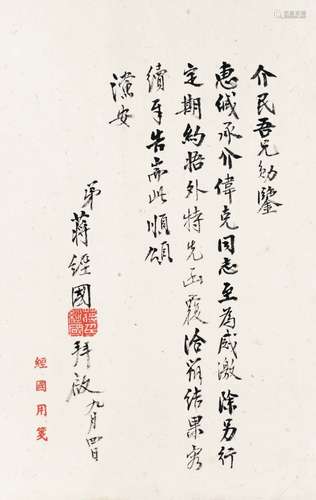 介民吾兄勛鑒
惠緘承介偉克同志至為感激除另行
定期約晤外特先函覆洽辦結果容
續奉告耑此順頌
黨安
弟蔣經國拜啟九月四日
經國用箋